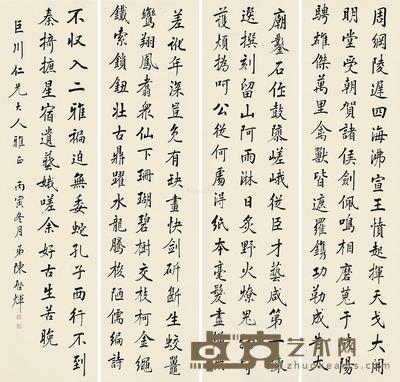 周綱陵遲四海沸宣王憤起揮天戈大開
明堂受朝賀諸侯劍佩鳴相磨蒐于陽
騁雄傑萬里禽獸皆遮羅鐫功勒成
廟鑿石作鼓隳嵯峨從臣才藝咸第一揀
選撰刻留山阿雨淋日炙野火燎鬼
護煩撝呵公從何處得紙本毫髮盡
差訛年深豈免有缺畫快劍斫斷生蛟鼉
鸞翔鳳翥衆仙下珊瑚碧樹交枝柯金繩
鐵索鎖鈕壯古鼎躍水龍騰梭陋儒編詩
不収入二雅褊迫無委蛇孔子西行不到
秦掎摭星宿遺羲娥嗟余好古生苦晚
巨川仁兄大人雅正 丙寅冬月弟陳啓輝
艺术网